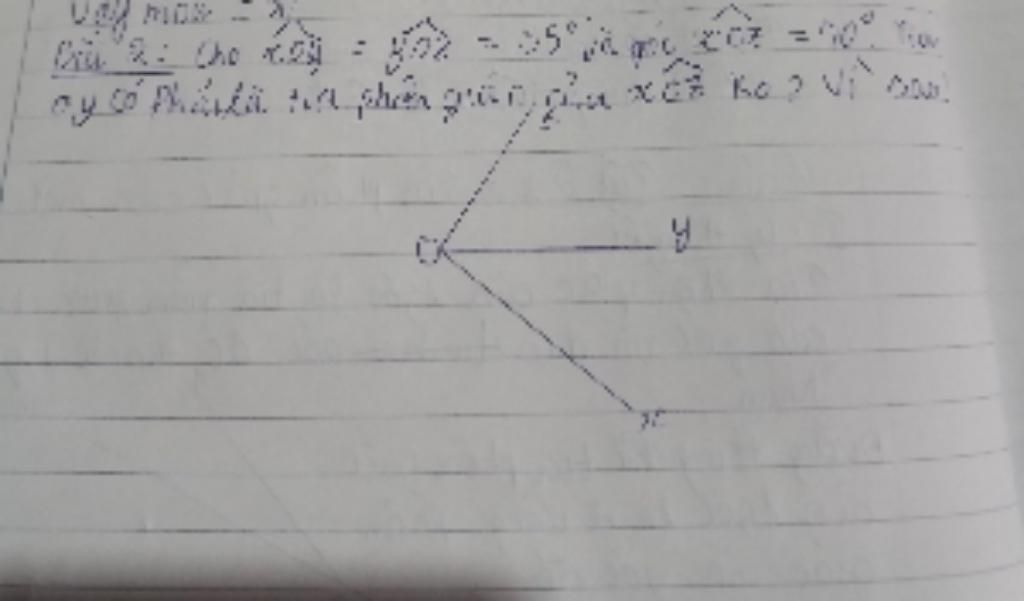 Vậy max =
Bài 2: Cho xOy = yOz = 35° và góc xOz = 90°. Tia
oy có phải là tia phân giác của xOz ko? Vì sao?
O
y
x